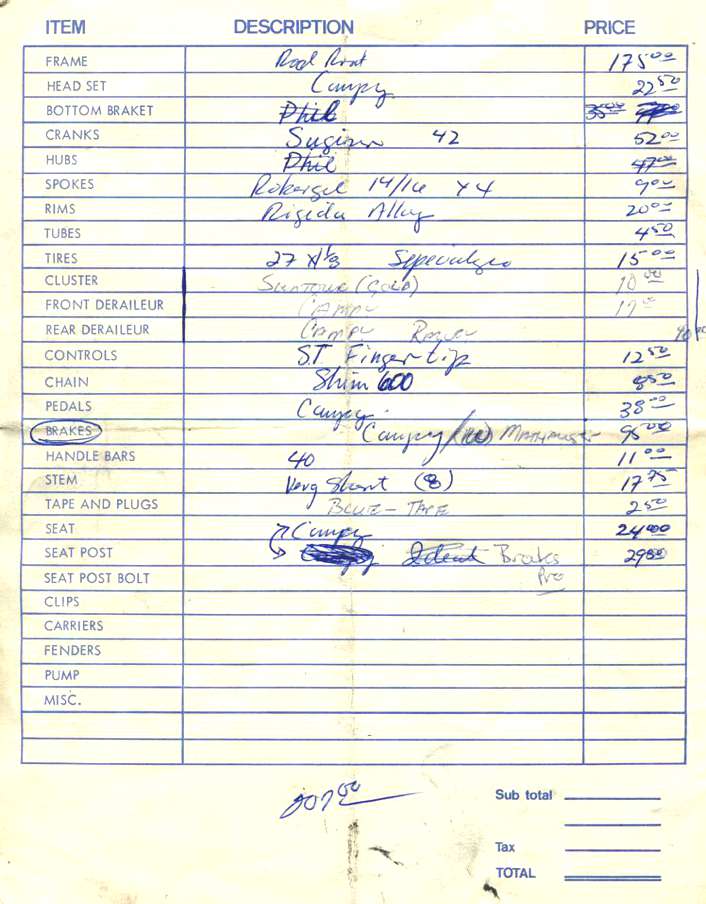 ITEM DESCRIPTION PRICE
FRAME 175 00
HEAD SET Campy 22 50
BOTTOM BRAKET Phil 35 00
CRANKS Sugino 42 52 00
HUBS Phil 47 00
SPOKES 14/16 X4 9 00
RIMS Rigida Alloy 20 00
TUBES 4 50
TIRES 27 x 15 00
CLUSTER Suntour (Gold) 10 00
FRONT DERAILEUR Campy 17 00
REAR DERAILEUR Campy
CONTROLS S.T Finger tip 12 50
CHAIN Shim 600 8 50
PEDALS Campy 38 00
BRAKES Campy 95 00
HANDLE BARS 40 11 00
STEM Very Short (8) 17 75
TAPE AND PLUGS BLUE - TAPE 2 50
SEAT Campy 24 00
SEAT POST 29 00
SEAT POST BOLT Pro
CLIPS
CARRIERS
FENDERS
PUMP
MISC.
207 00
Sub total
Tax
TOTAL